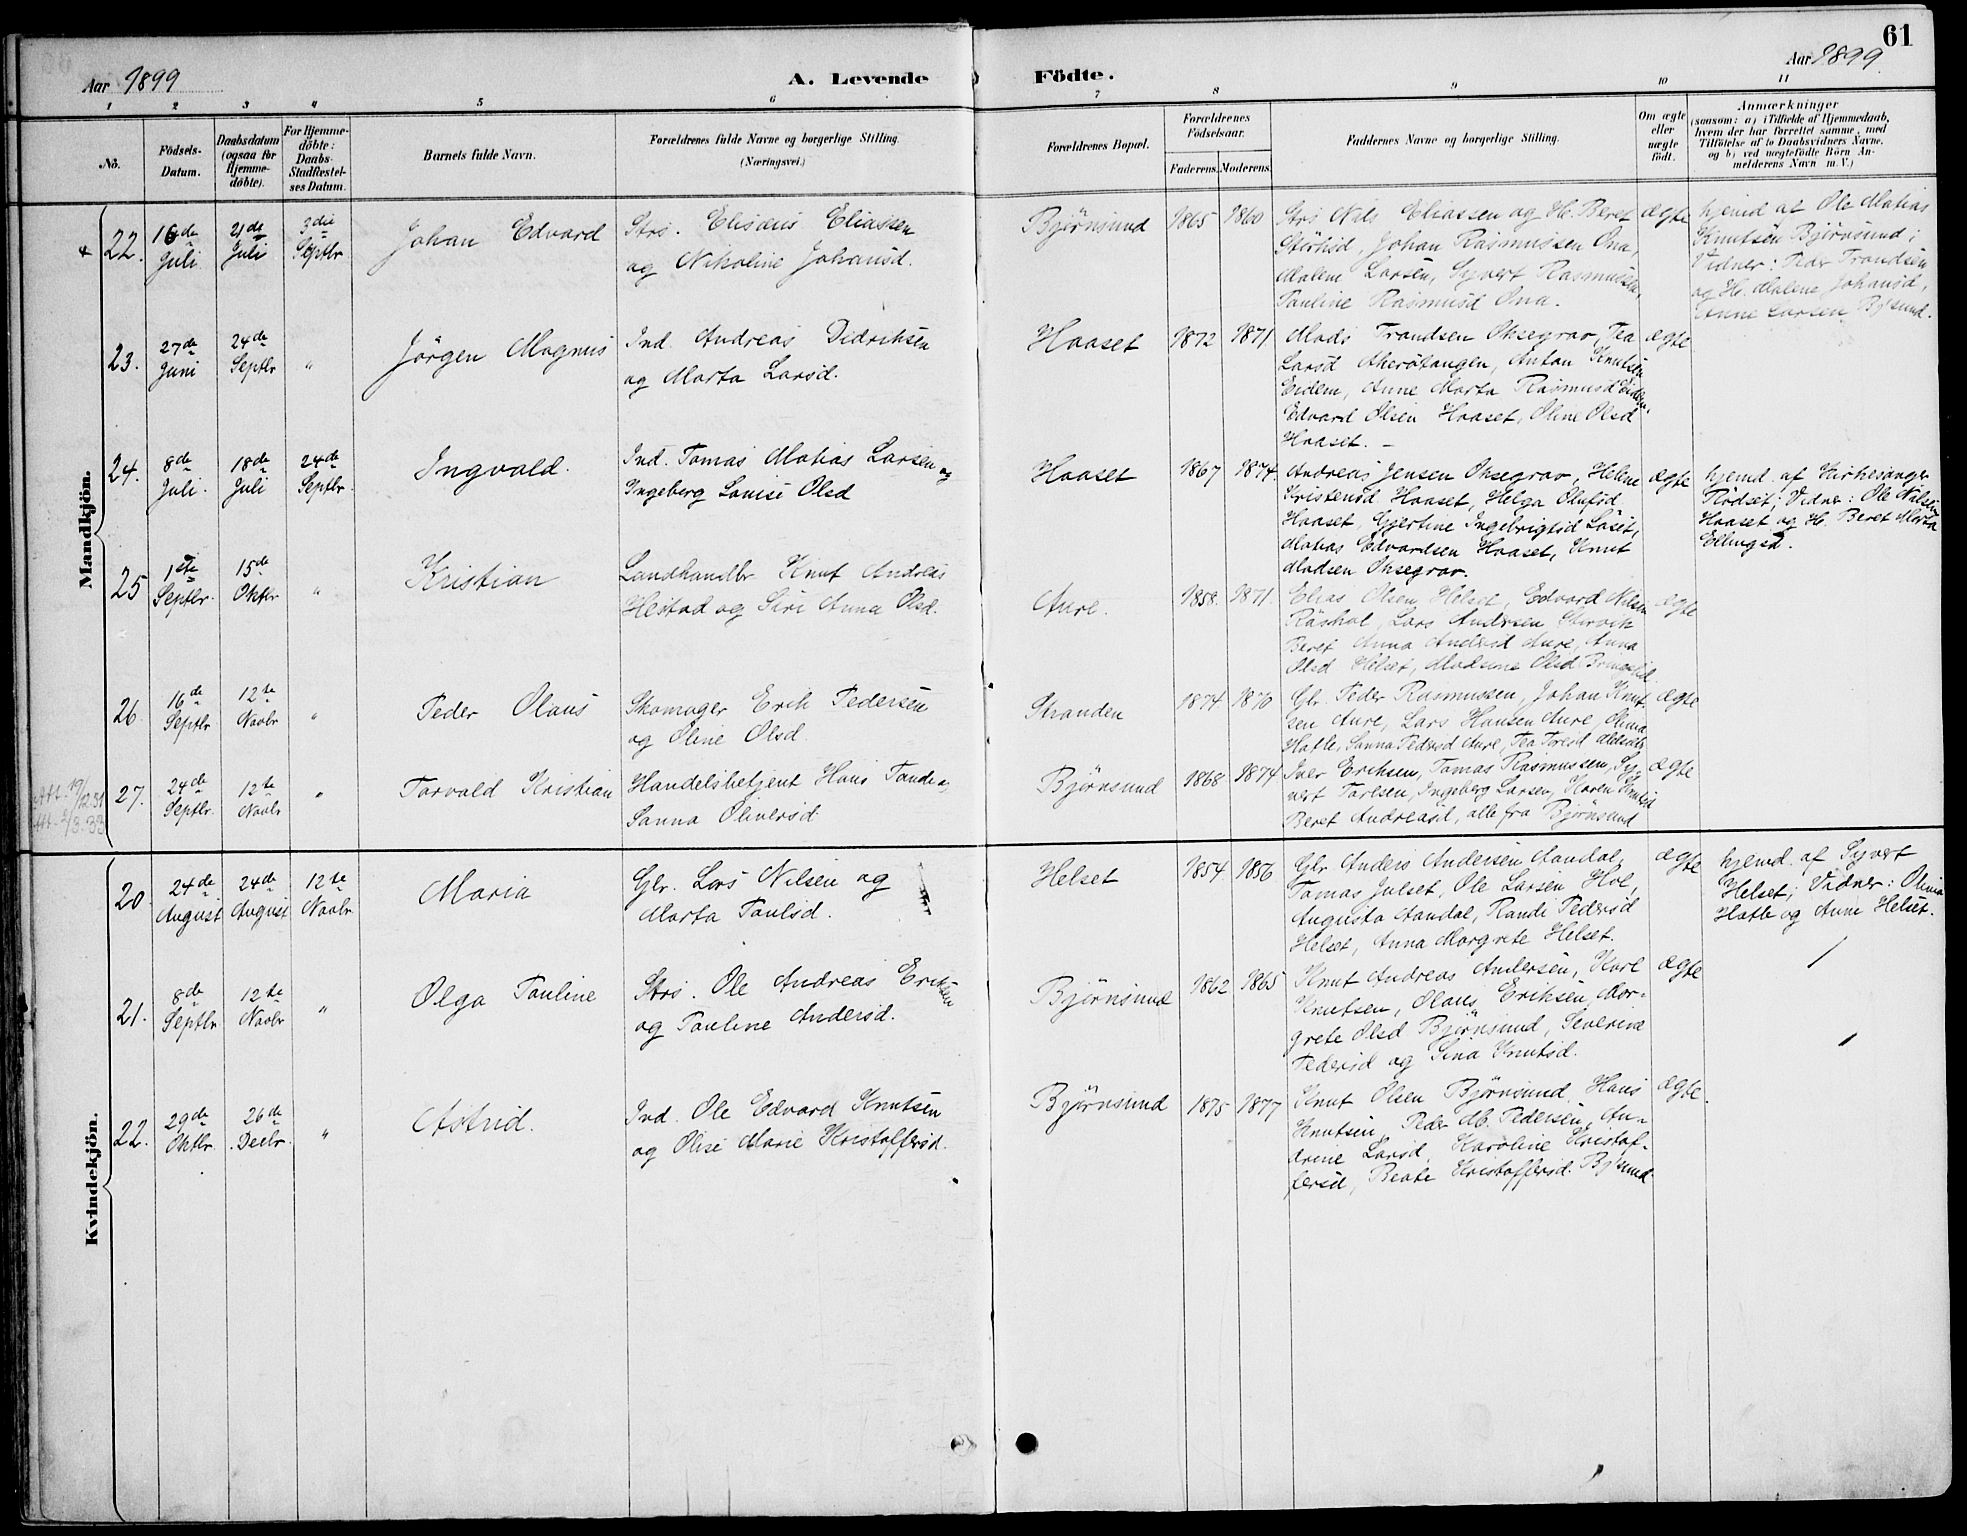 61
Aar 1899
A. Levende
Födte.
Aar 1899.
1 2 3 4 5 6 7 8 9 10 11
No.
Födsels-
Datum.
Daabsdatum
(ogsaa for
Hjemme-
döbte).
For Hjemme-
döbte:
Daabs-
Stadfæstel-
ses Datum.
Barnets fulde Navn.
Forældrenes fulde Navne og borgerlige Stilling.
(Næringsvei.)
Forældrenes Bopæl.
Forældrenes
Födselsaar.
Faderens. Moderens.
Faddernes Navne og borgerlige Stilling.
Om ægte
eller
uægte
födt.
Anmærkninger
(saasom: a) i Tilfælde af Hjemmedaab,
hvem der har forrettet samme, med
Tilföielse af to Daabsvidners Navne,
og b) ved uægtefödte Börn An-
melderens Navn m. V.)
Mandkjön.
22.
16de
Juli
21de
Juli
3die
Septbr
Johan Edvard
Strs. Elisæus Eliassen
og Nikoline Johansd.
Björnsund
1865
1860
Strs Nils Eliassen og H. Beret
Johan Rasmussen Ona,
Malene Larsen, Syvert Rasmussen,
Pauline Rasmusd Ona.
ægte
hjemd af Ole Matias
Knutsen Björnsund;
Vidner: Peder Trondsen
og H. Malene Johansd,
Anne Larsen Bj'sund.
23.
27de
Juni
24de
Septbr
"
Jörgen Magnus
Ind. Andreas Didriksen
og Marta Larsd.
Haaset
1872
1871.
Mads Trondsen Oksegrav, Tea
Larsd Akeröтangen, Anton Knutsen
Eidem, Anne Marta Rasmusd Eidem,
Edvard Olsen Haaset, Oline Olsd
Haaset. –
ægte
24.
8de
Juli.
18de
Juli
24de
Septbr
Ingvald.
Ind. Tomas Matias Larsen og
Ingeberg Louise Olsd
Haaset
1867
1874.
Andreas Jensen Oksegrav, Helene
Kristensd Haaset, Helga Olufsd
Haaset, Gjertine Ingebrigtsd Löset,
Matias Edvardsen Haaset, Knut
Madsen Oksegrav.
ægte
hjemd. af Kirkesanger
Rödset; Vidner: Ole Nilsen
Haaset og H. Beret Marta
Ellingsd.
25
1ste
Septbr.
15de
Oktbr
"
Kristian
Landhandlr Knut Andreas
Hestad og Siri Anna Olsd.
Aure.
1858.
1871.
Elias Olsen Helset, Edvard Nilsen
Lars Andersen
Beret Anna Andersd Aure, Anna
Olsd Helset, Olsd
ægte
26.
16de
Septbr
12te
Novbr
"
Peder Olaus
Skomager Erik Pedersen
og Oline Olsd.
Stranden
1874
1870
Gbr Peder Rasmussen, Johan Knut-
sen Aure, Lars Hansen Aure, Olina
Hatle, Sanna Pedersd Aure, Tea
ægte
27.
24de
Septbr.
12te
Novbr
"
Torvald Kristian
Handelsbetjent Hans Tande og
Sanna Oliversd.
Björnsund
1868
1874
Iver Eriksen, Tomas Rasmussen, Sy-
vert Tarlsen, Ingeberg Larsen, Karen Knutsd
Beret Andreasd, alle fra Björnsund
ægte
Kvindekjön.
20.
24de
August
24de
August
12te
Novbr
Maria
Gbr. Lars Nilsen og
Marta Paulsd.
Helset
1854
1856
Gbr Anders Andersen Aandal,
Tomas Julset, Ole Larsen Hol,
Augusta Aandal, Randi Pedersd
Helset, Anna Margrete Helset.
ægte
hjemd. af Syvert
Helset; Vidner: Olina
Hatle og Anne Helset.
21.
8de
Septbr
12te
Novbr
"
Olga Pauline
Strs. Ole Andreas Eriksen
og Pauline Andersd.
Björnsund
1862
1865
Knut Andreas Andersen, Karl
Knutsen, Olaus Eriksen, Mar-
grete Olsd Björnsund, Severine
Pedersd og Sina Knutsd.
ægte
22.
29de
Oktbr.
26de
Decbr.
"
Astrid.
Ind. Ole Edvard Knutsen
og Olise Marie Kristoffersd.
Björnsund
1875
1877
Knut Olsen Björnsund, Hans
Knutsen, Peder Mb. Pedersen, An-
drine Larsd, Karoline Kristof-
fersd, Beate Kristoffersd. Bj'sund.
ægte.